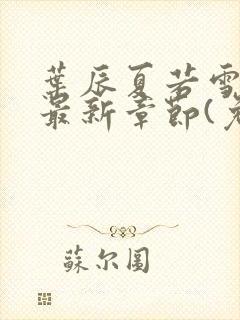 葉辰夏若雪
最新章節(
蘇尔圓